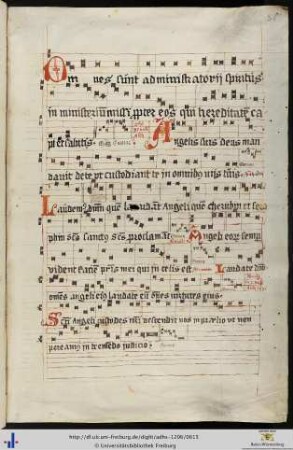 Om nes sunt administratorij spiritus
in ministerium missi ppter eos qui hereditate ca
piet salutis Angelis suis deus man
davit de te ut custodiant te in omnibus viis tuis
Laudem dum que laudat Angeli que cherubin et se
phin scs sanctus scs proclamat Angeli eoru semp
vident facie pris mei qui in celis est Laudate dnm
omes angeli eius laudate eu oes virtutes eius
Sci Angeli custodes nri defendite nos in prelio ut non
pereamus in tremedo iudicio
http://dl.ub.uni-freiburg.de/diglit/adhs-1206/0013
© Universitätsbibliothek Freiburg